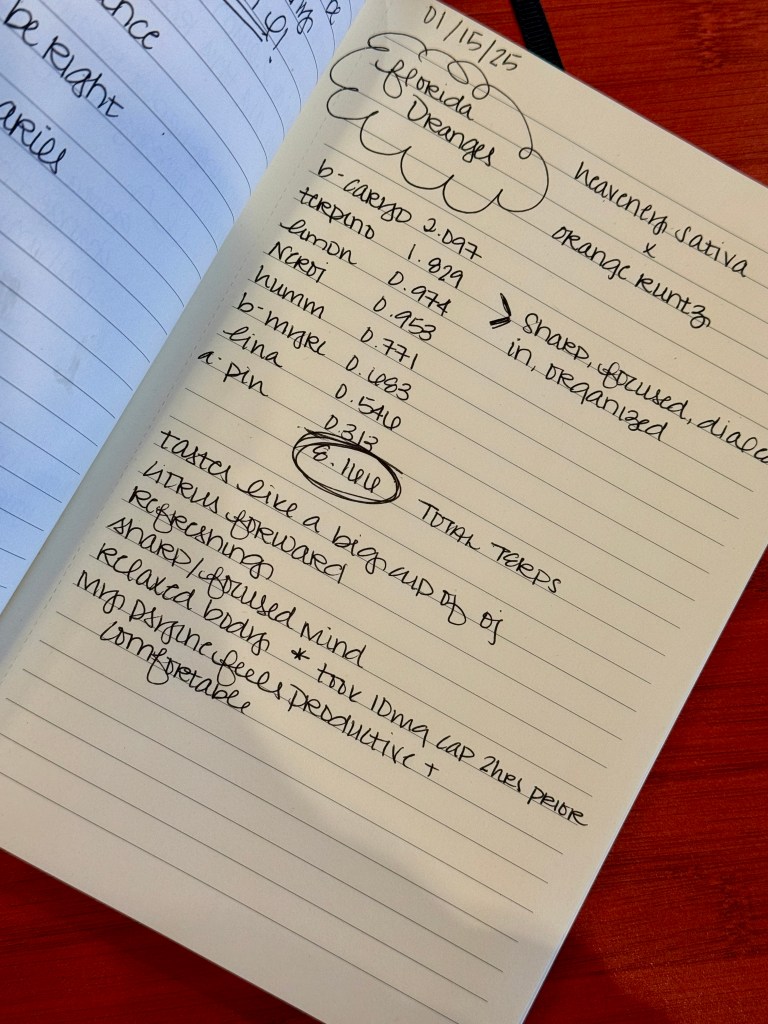 ence
be right
aries
01/15/25
Florida
Oranges
heavenly sativa
x
orange runtz
b-caryo 2.097
terpino 1.829
limon 0.974
neroi 0.953
humm 0.771
b-myrc 0.683
lina 0.546
a. pin 0.313
8.166 TOTAL TERPS
> sharp, focused, dialed
in, organized
tastes like a big cup of oj
citrus forward
refreshing
sharp/focused mind
relaxed body * took 10mg cap 2hrs prior
my psyche feels productive +
comfortable